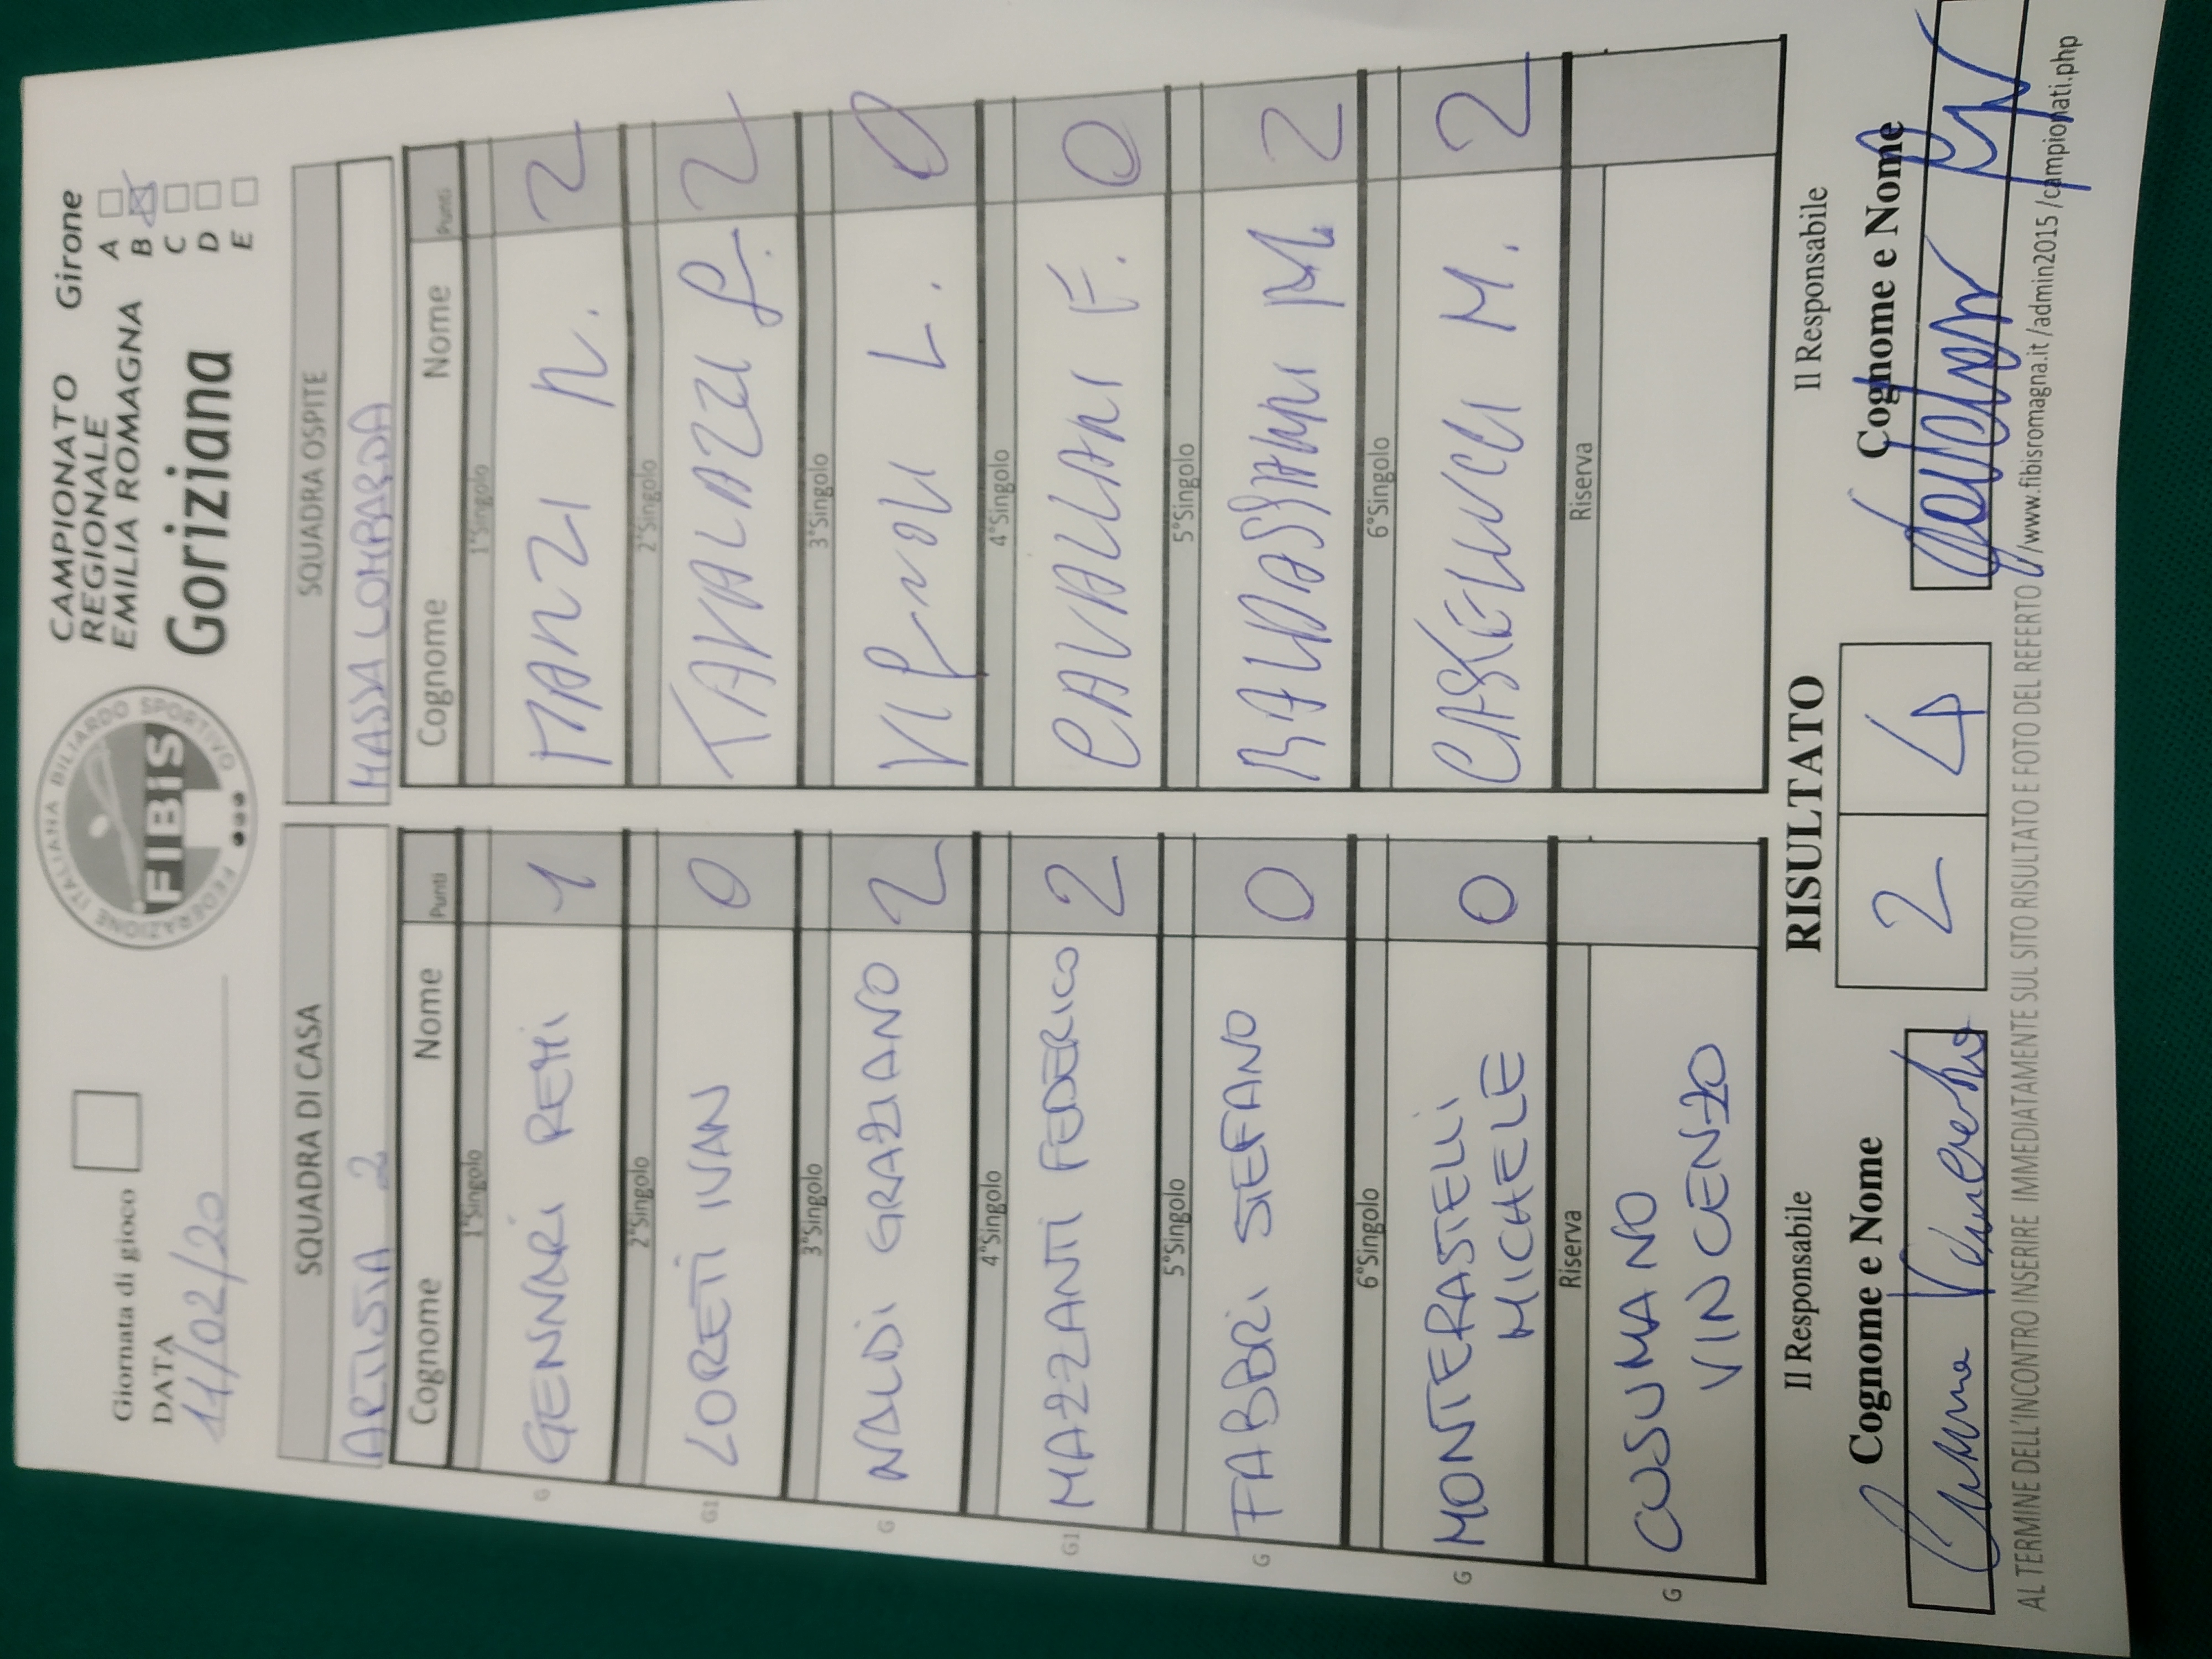 Giornata di gioco
DATA
11/02/20
FEDERAZIONE ITALIANA BILIARDO SPORTIVO
FIBiS
CAMPIONATO
REGIONALE
EMILIA ROMAGNA
Goriziana
Girone
A
B
C
D
E
SQUADRA DI CASA
ARTUSIA 2
Cognome Nome Punti
1°Singolo
G GENNARI REMI 1
2°Singolo
G1 LORETI IVAN 0
3°Singolo
G NALDI GRAZIANO 2
4°Singolo
G1 MAZZANTI FEDERICO 2
5°Singolo
G FABBRI STEFANO 0
6°Singolo
G MONTERASTELLI
MICHELE 0
Riserva
G CUSUMANO
VINCENZO
SQUADRA OSPITE
MASSA LOMBARDA
Cognome Nome Punti
1°Singolo
MANZI N. 2
2°Singolo
TAVALAZZI 2
3°Singolo
L. 0
4°Singolo
CAVALLARI F. 0
5°Singolo
BALDASSARRI M. 2
6°Singolo
CASTELLUCCI M. 2
Riserva
RISULTATO
2 4
Il Responsabile
Cognome e Nome
Il Responsabile
Cognome e Nome
AL TERMINE DELL'INCONTRO INSERIRE IMMEDIATAMENTE SUL SITO RISULTATO E FOTO DEL REFERTO //www.fibisromagna.it/admin2015/campionati.php